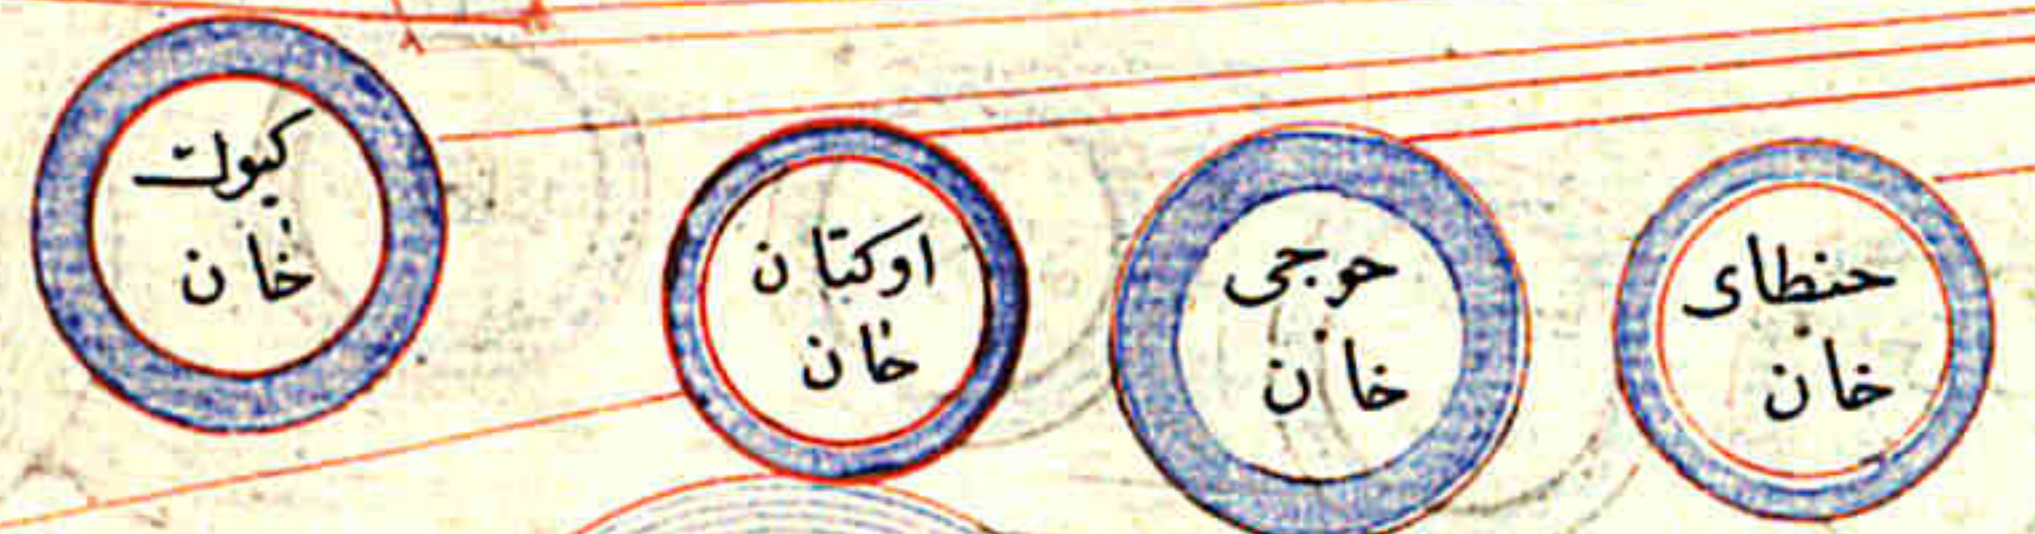 حنطای
خان
حوجی
خان
اوکتان
خان
کیوك
خان